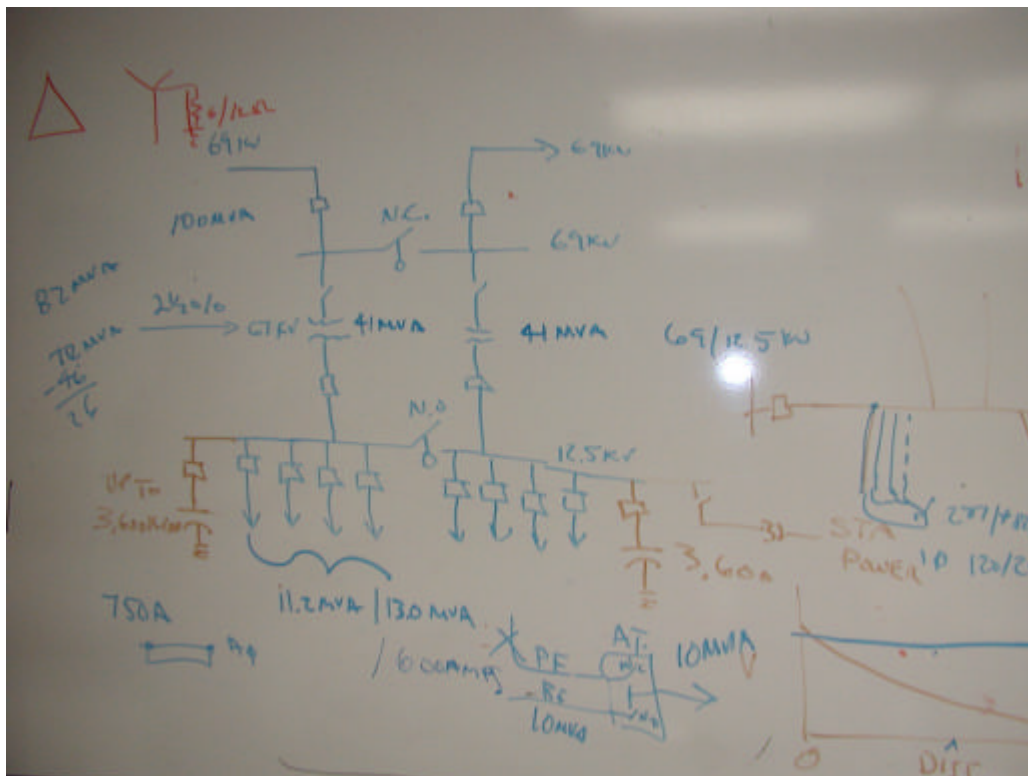 69KV
69KV
100MVA
N.C.
69KV
82 MVA
72 MVA
-46
26
2½%
67KV
41MVA
41MVA
69/12.5KV
N.O
12.5KV
UP TO
3,600
3,600
STA
POWER 1Ø 120/2
750A
11.2MVA/13.0MVA
/600AMPS
PF
A.T.
N.C
10MVA
10MVA
0
DIST